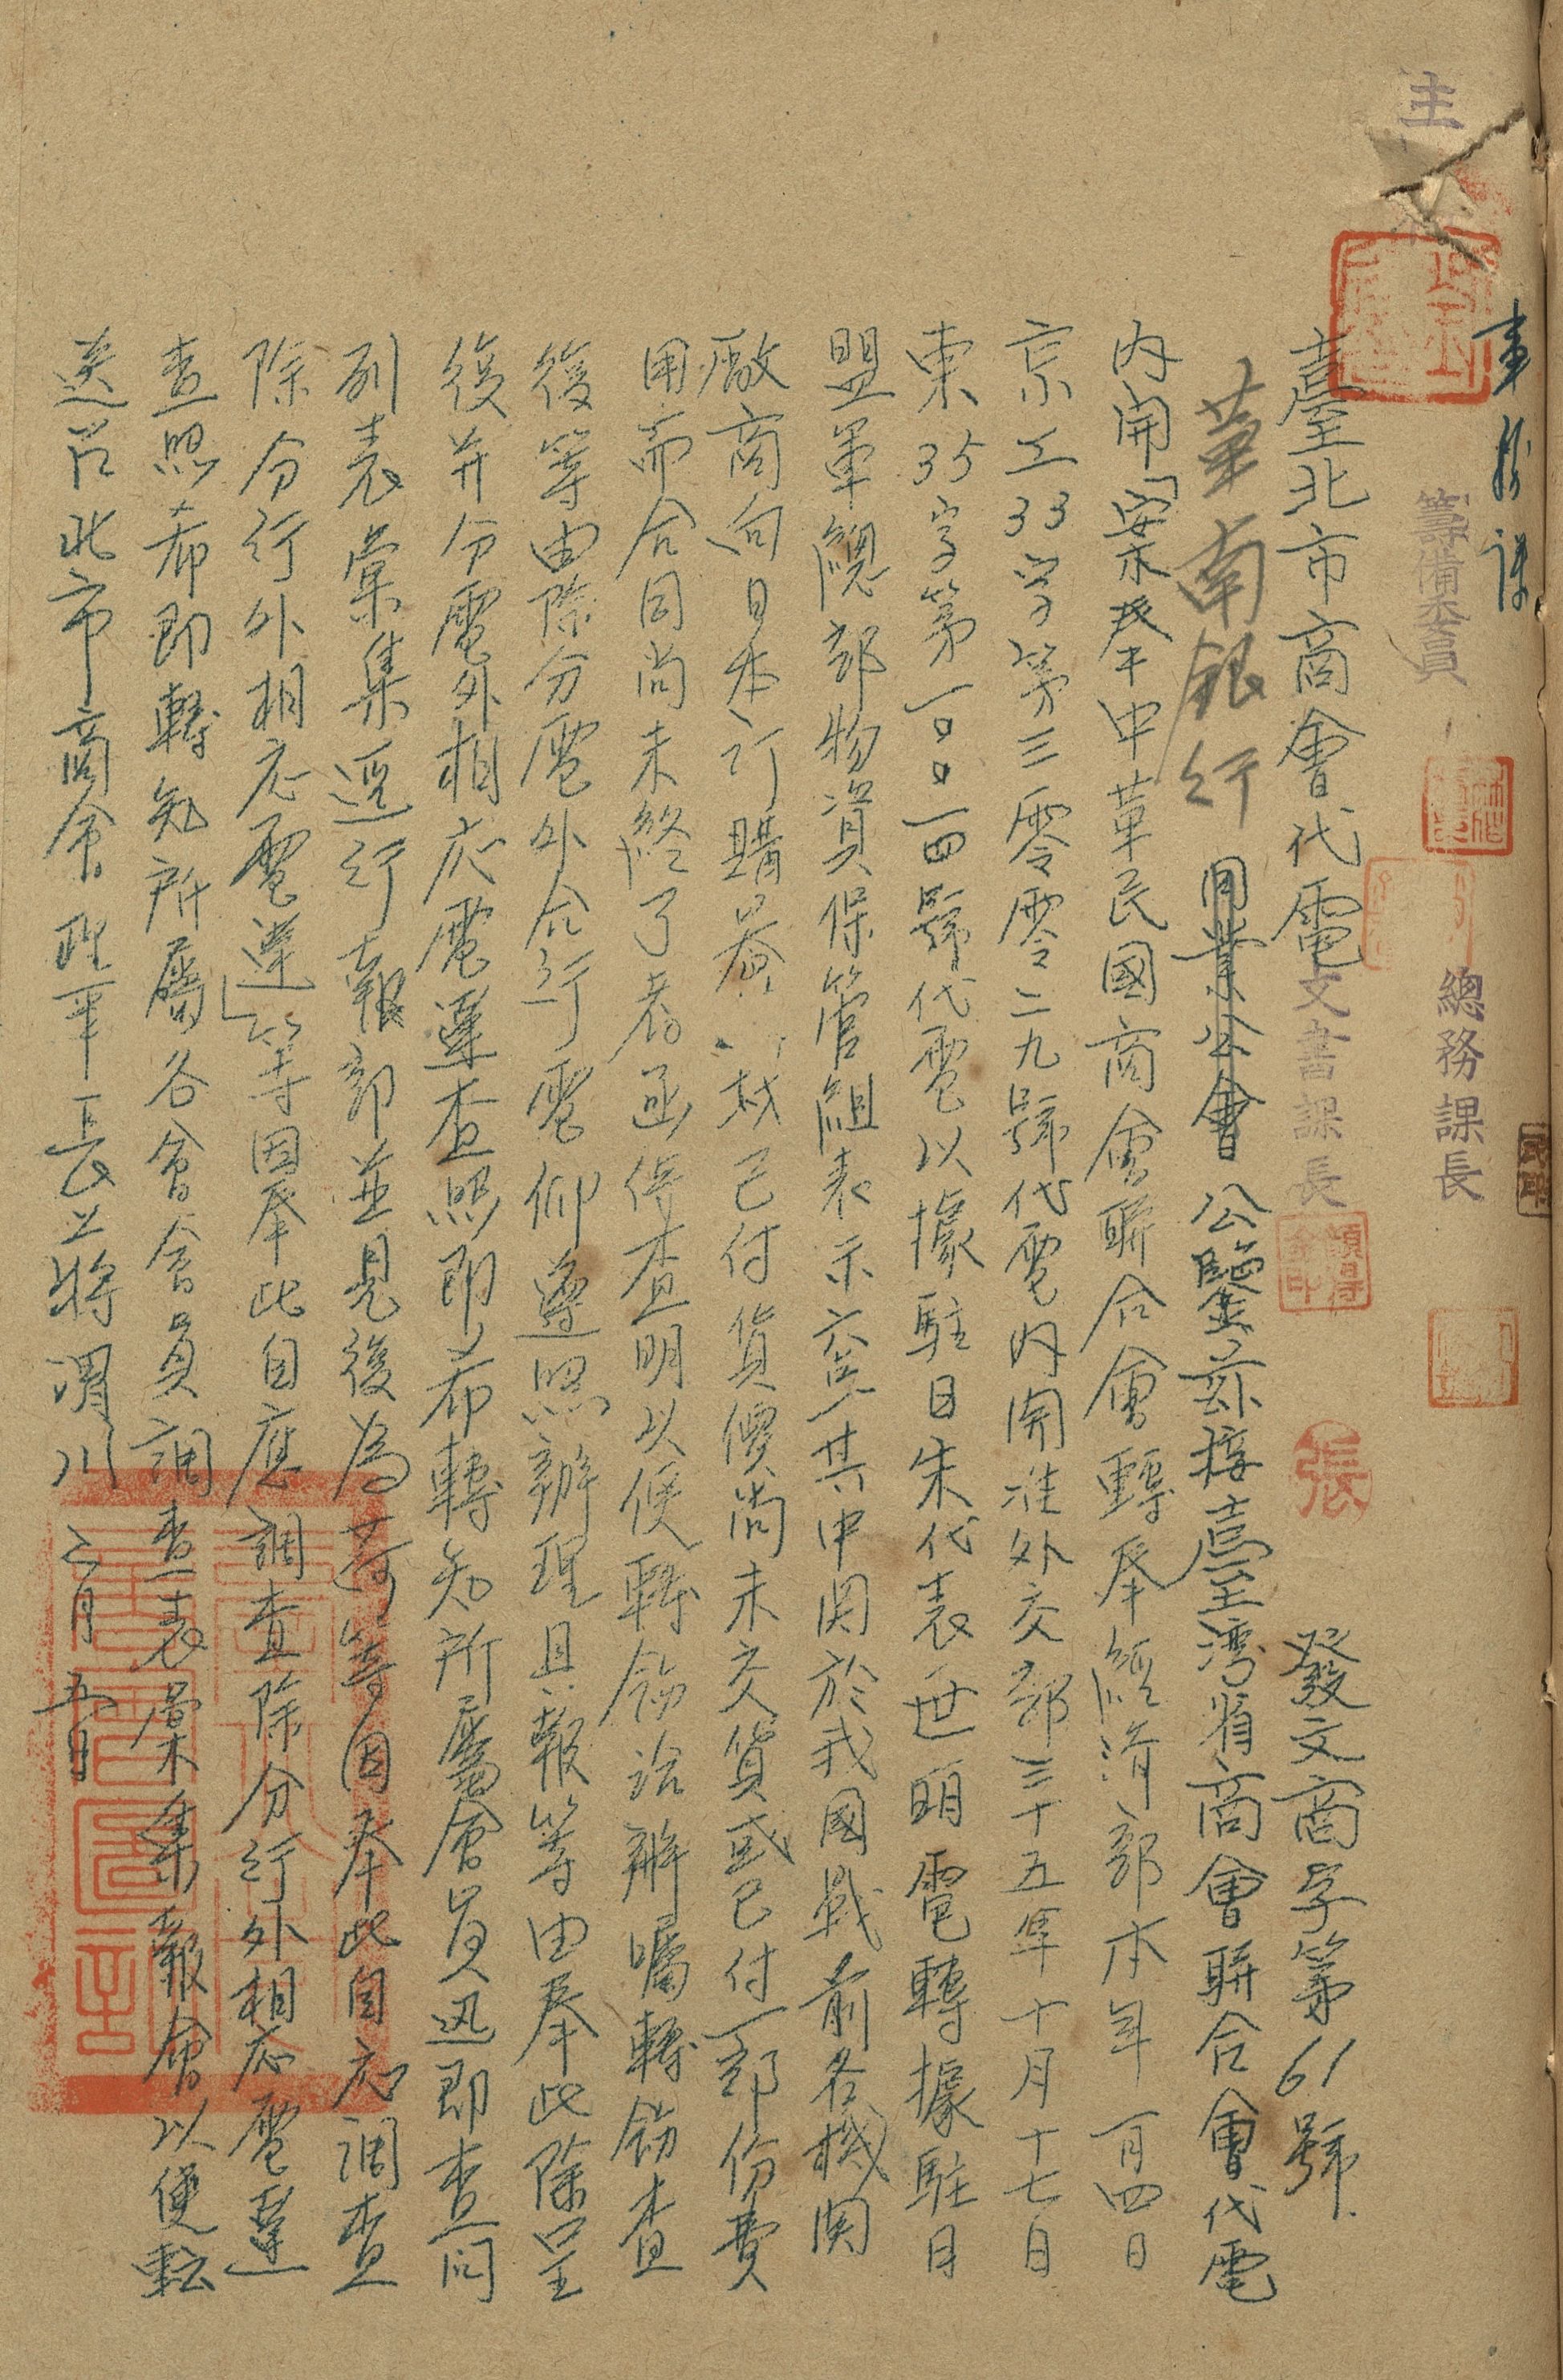 主
業務課
籌備委員
總務課長
文書課長
張
臺北市商會代電 發文商字第61號
華南銀行 同業公會 公鑒茲接臺灣省商會聯合會代電
內開「案奉中華民國商會聯合會轉奉經濟部本年一月四日
京工33字第三零零二九號代電內開准外交部三十五年十月十七日
東35字第一〇〇一四號代電以據駐日朱代表世明電轉據駐日
盟軍總部物資保管組表示意見其中関於我國戰前各機関
廠商向日本訂購器材已付貨價尚未交貨或已付一部份費
用而合同尚未終了者亟待查明以便轉飭洽辦囑轉飭查
復等由除分電外合行電仰遵照辦理具報等由奉此除呈
復并分電外相應電達查照即希轉知所屬會員迅即查同
列表彙集逕行報部並見復為荷等因奉此自應調查
除分行外相應電達」等因奉此自應調查除分行外相應電達
查照希即轉知所屬各會會員調查表彙集報會以便転
送台北市商會理事長蔣渭川 二月五日